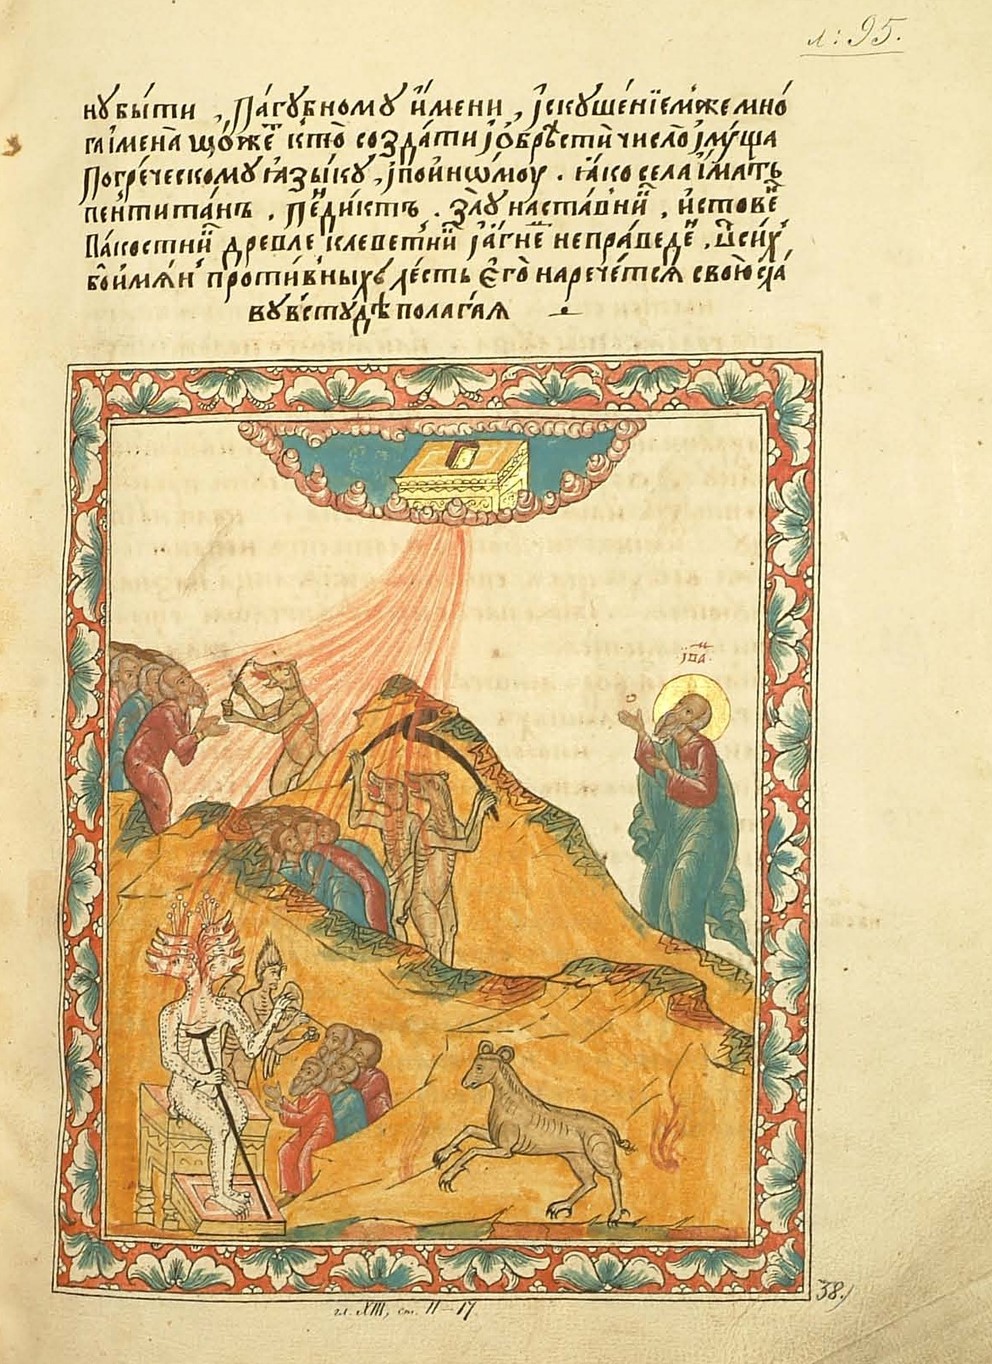 л: 95.
нꙋ бы́ти , Па́гꙋбномꙋ и́мени , јскꙋше́нїемже мно́
га и́мена що́же кто̀ созда́ти јѡбрѣсти̂ число̀ јлꙋ́ща
Погре́ческомꙋ ꙗзы́кꙋ , јпо и́нѡмоу . ꙗ́ко села̀ и́матъ
пентита́нъ . Пе́диктъ . злꙋ наста́вни , и́стове
Па́костнй дре́вле клевет́нй ја́гне непра́веде , Ѿ си́х
бои́мян проти́вныхъ ле́сть Єго̀ нарече́тся свою̀
вꙋ встꙋдѣ полага́я
јѡа
38.
гл. XIII, ст. 11–17.